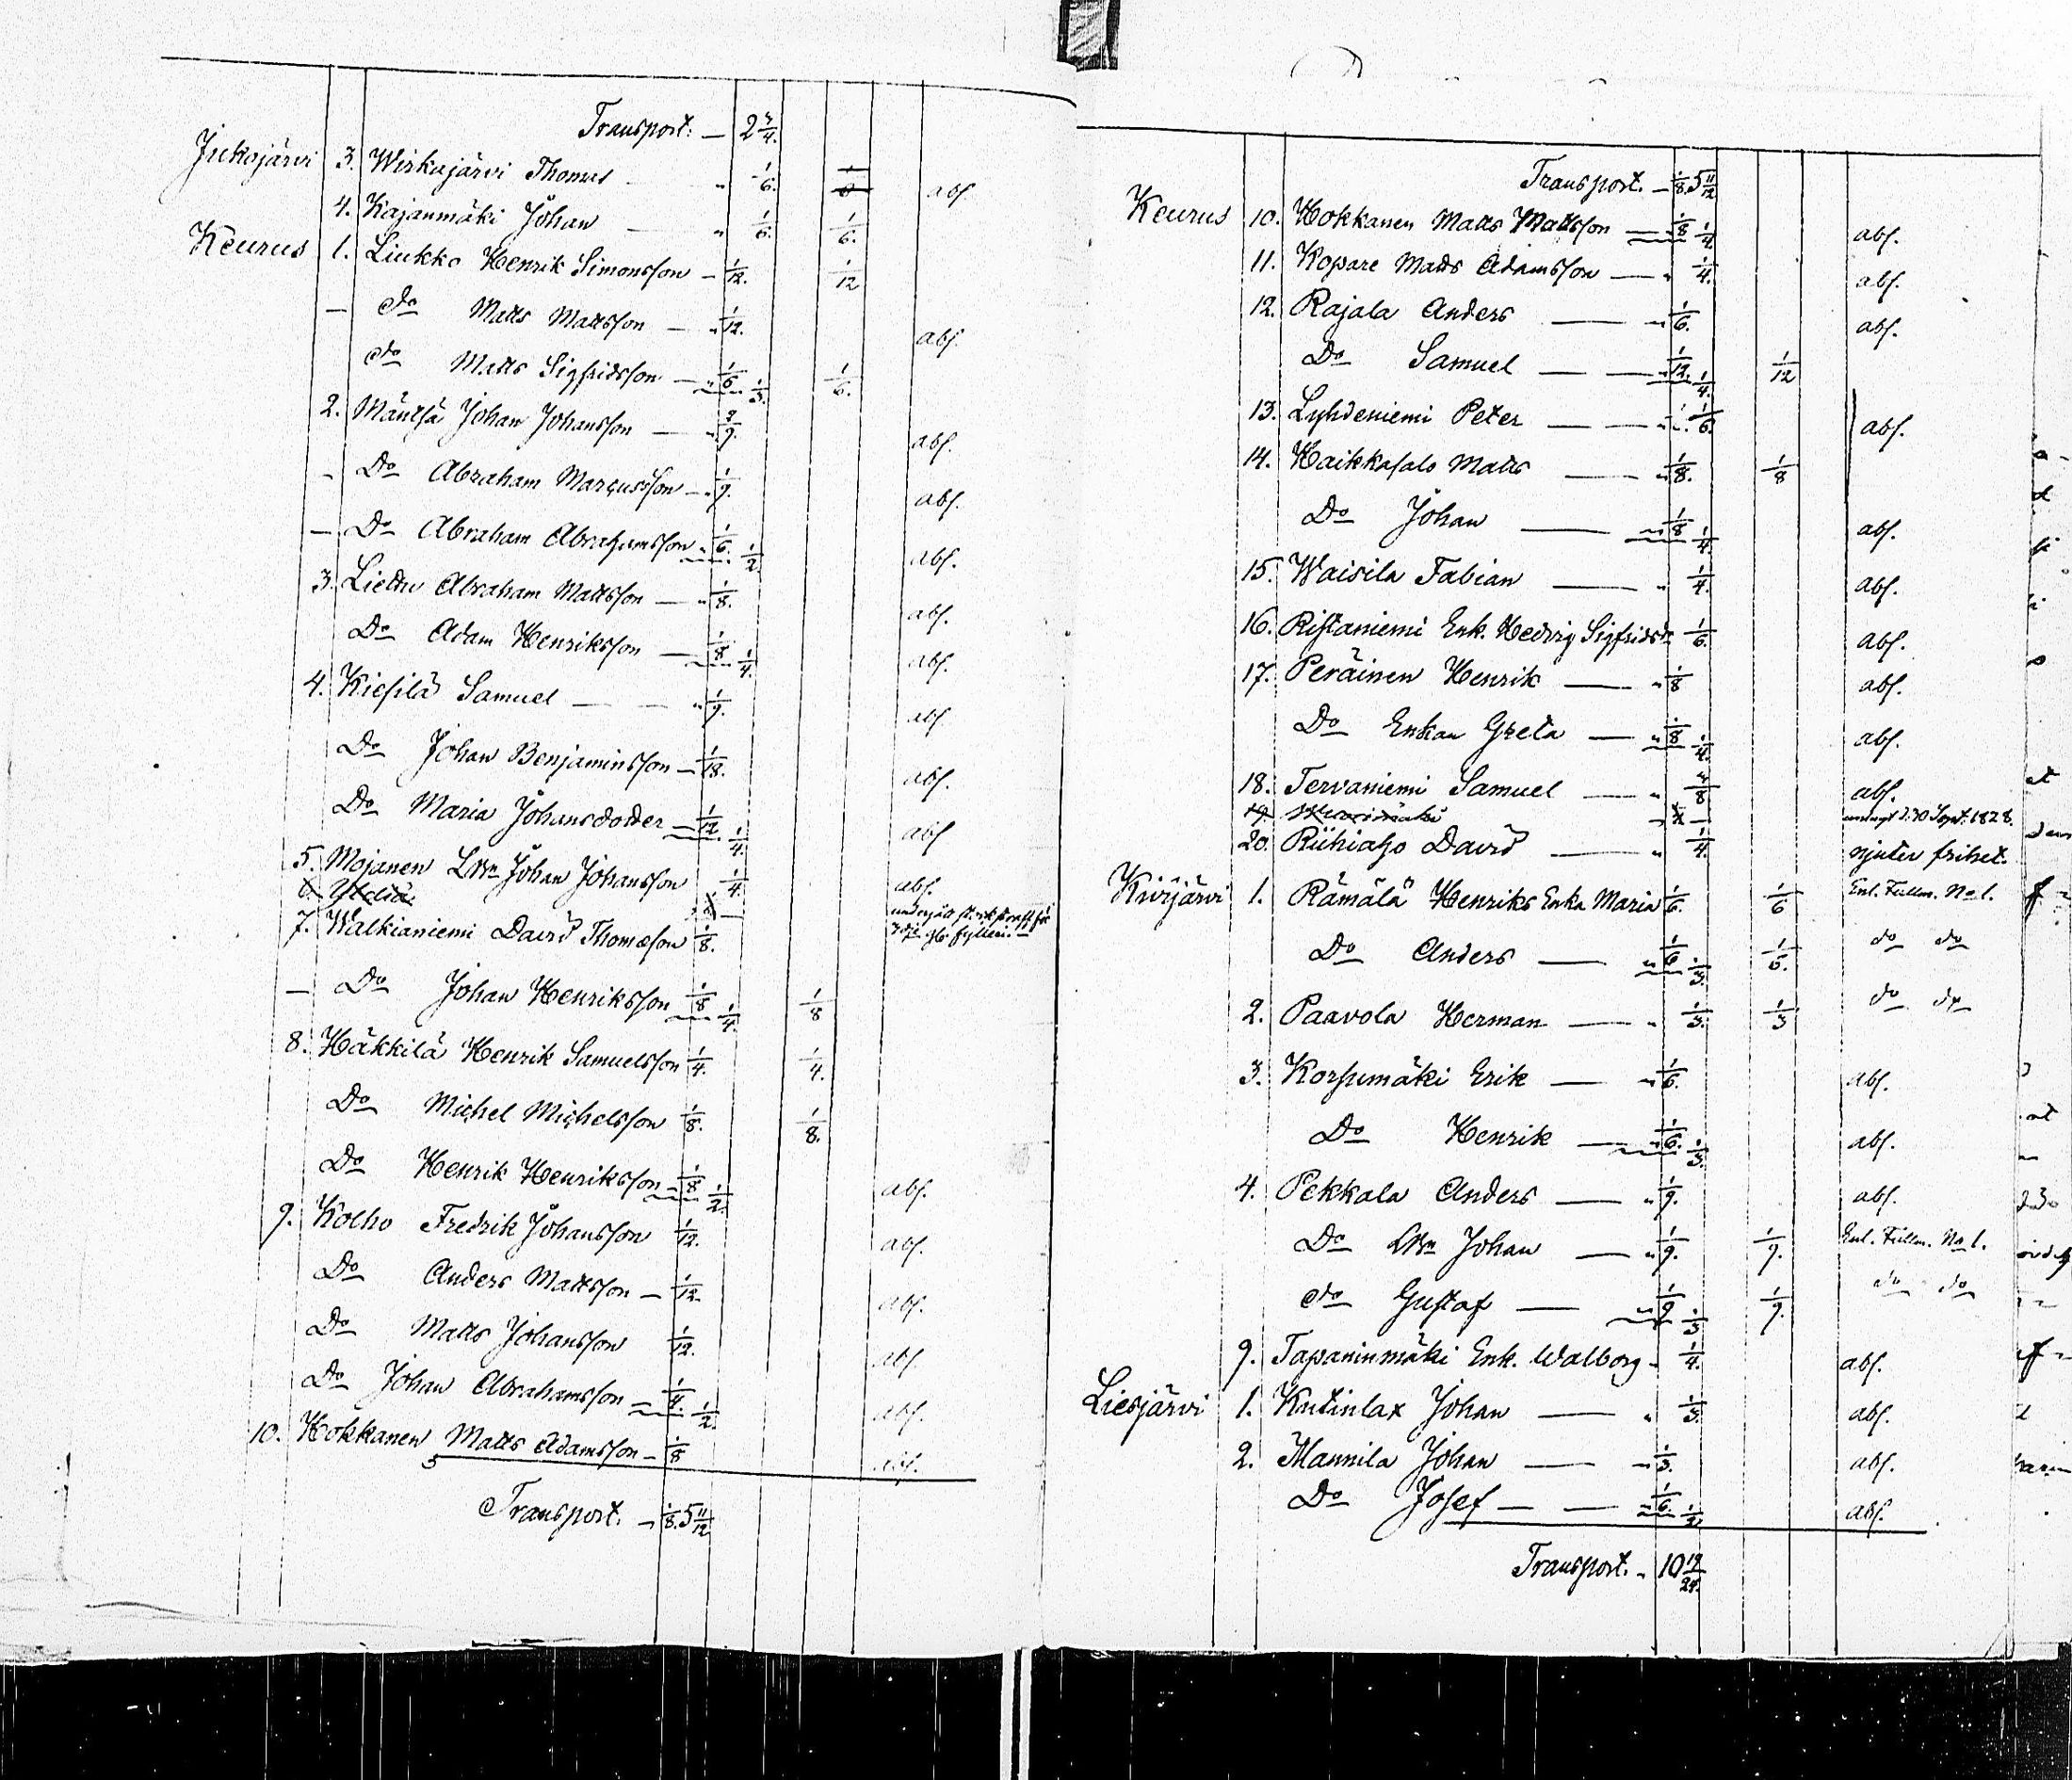 Transport. — 2 3/4.
Jukojärvi 3. Wirkajärvi Thomas — „ 1/6. abs.
4. Kajanmäki Johan — „ 1/6. 1/6.
Keurus 1. Liukko Henrik Simonsson — 1/12. 1/12
— do Matts Mattsson — „ 1/12. abs.
do Matts Sigfridsson — „ 1/6. 1/3. 1/6.
2. Mäntsä Johan Johansson — „ 2/9. abs.
- Do Abraham Marcusson — „ 1/9. abs.
— Do Abraham Abrahamsson „ 1/6. 1/2 abs.
3. Liettu Abraham Mattsson — „ 1/8. abs.
Do Adam Henriksson — 1/8 1/4. abs.
4. Kiesilä Samuel — — „ 1/9. abs.
Do Johan Benjaminsson — 1/18. abs.
Do Maria Johansdotter — 1/12. 1/4. abs
5. Mojanen Johan Johansson 1/4. abs.
6.
7. Walkianiemi David Thomasson 1/8.
— Do Johan Henriksson 1/8 1/4. 1/8
8. Häkkilä Henrik Samuelsson 1/4. 1/4.
Do Michel Michelsson 1/8. 1/8.
Do Henrik Henriksson — 1/8 1/2. abs.
9. Kolho Fredrik Johansson 1/12. abs.
Do Anders Mattsson — 1/12. abs.
Do Matts Johansson 1/12. abs.
Do Johan Abrahamsson — 1/4. 1/2. abs.
10. Hokkanen Matts Adamsson — 1/8 abs.
Transport. — 1/8. 5 11/12
Transport. — 1/8. 5 11/12
Keurus 10. Hokkanen Matts Mattsson — 1/8 1/4 abs.
11. Kopare Matts Adamsson — „ 1/4. abs.
12. Rajala Anders — „ 1/6. abs.
Do Samuel — — „ 1/12. 1/4. 1/12
13. Lyhdeniemi Peter — — „ 1/6. abs.
14. Haikkasalo Matts — „ 1/8. 1/8
Do Johan — „ 1/8 1/4. abs.
15. Waisila Fabian — „ 1/4. abs.
16. Ristaniemi Enk. Hedvig Sigfridsdr 1/6. abs.
17. Peräinen Henrik — „ 1/8 abs.
Do Enkan Greta — „ 1/8 1/4. abs.
18. Tervaniemi Samuel — „ /8 abs.
19. d. 30 Sept. 1828.
20. Riihiaho David — „ 1/4. njuter frihet.
Kivijärvi 1. Rämälä Henriks Enka Maria 1/6. 1/6 Enl. Fullm. No 1.
Do Anders — „ 1/6 1/3. 1/6. do do
2. Paavola Herman — „ 1/3. 1/3 do do
3. Korsumäki Erik — „ 1/6. abs.
Do Henrik — „ 1/6. 1/3. abs.
4. Pekkala Anders — „ 1/9. abs.
Do Johan — „ 1/9. 1/9. Enl. Fullm. No 1.
do Gustaf — „ 1/9 1/3 1/9. do do
9. Tapaninmäki Enk. Walborg - 1/4. abs.
Liesjärvi 1. Kutinlax Johan — „ 1/3. abs.
2. Mannila Johan — „ 1/3. abs.
Do Josef — — „ 1/6. 1/2. abs.
Transport. - 10 19/24.